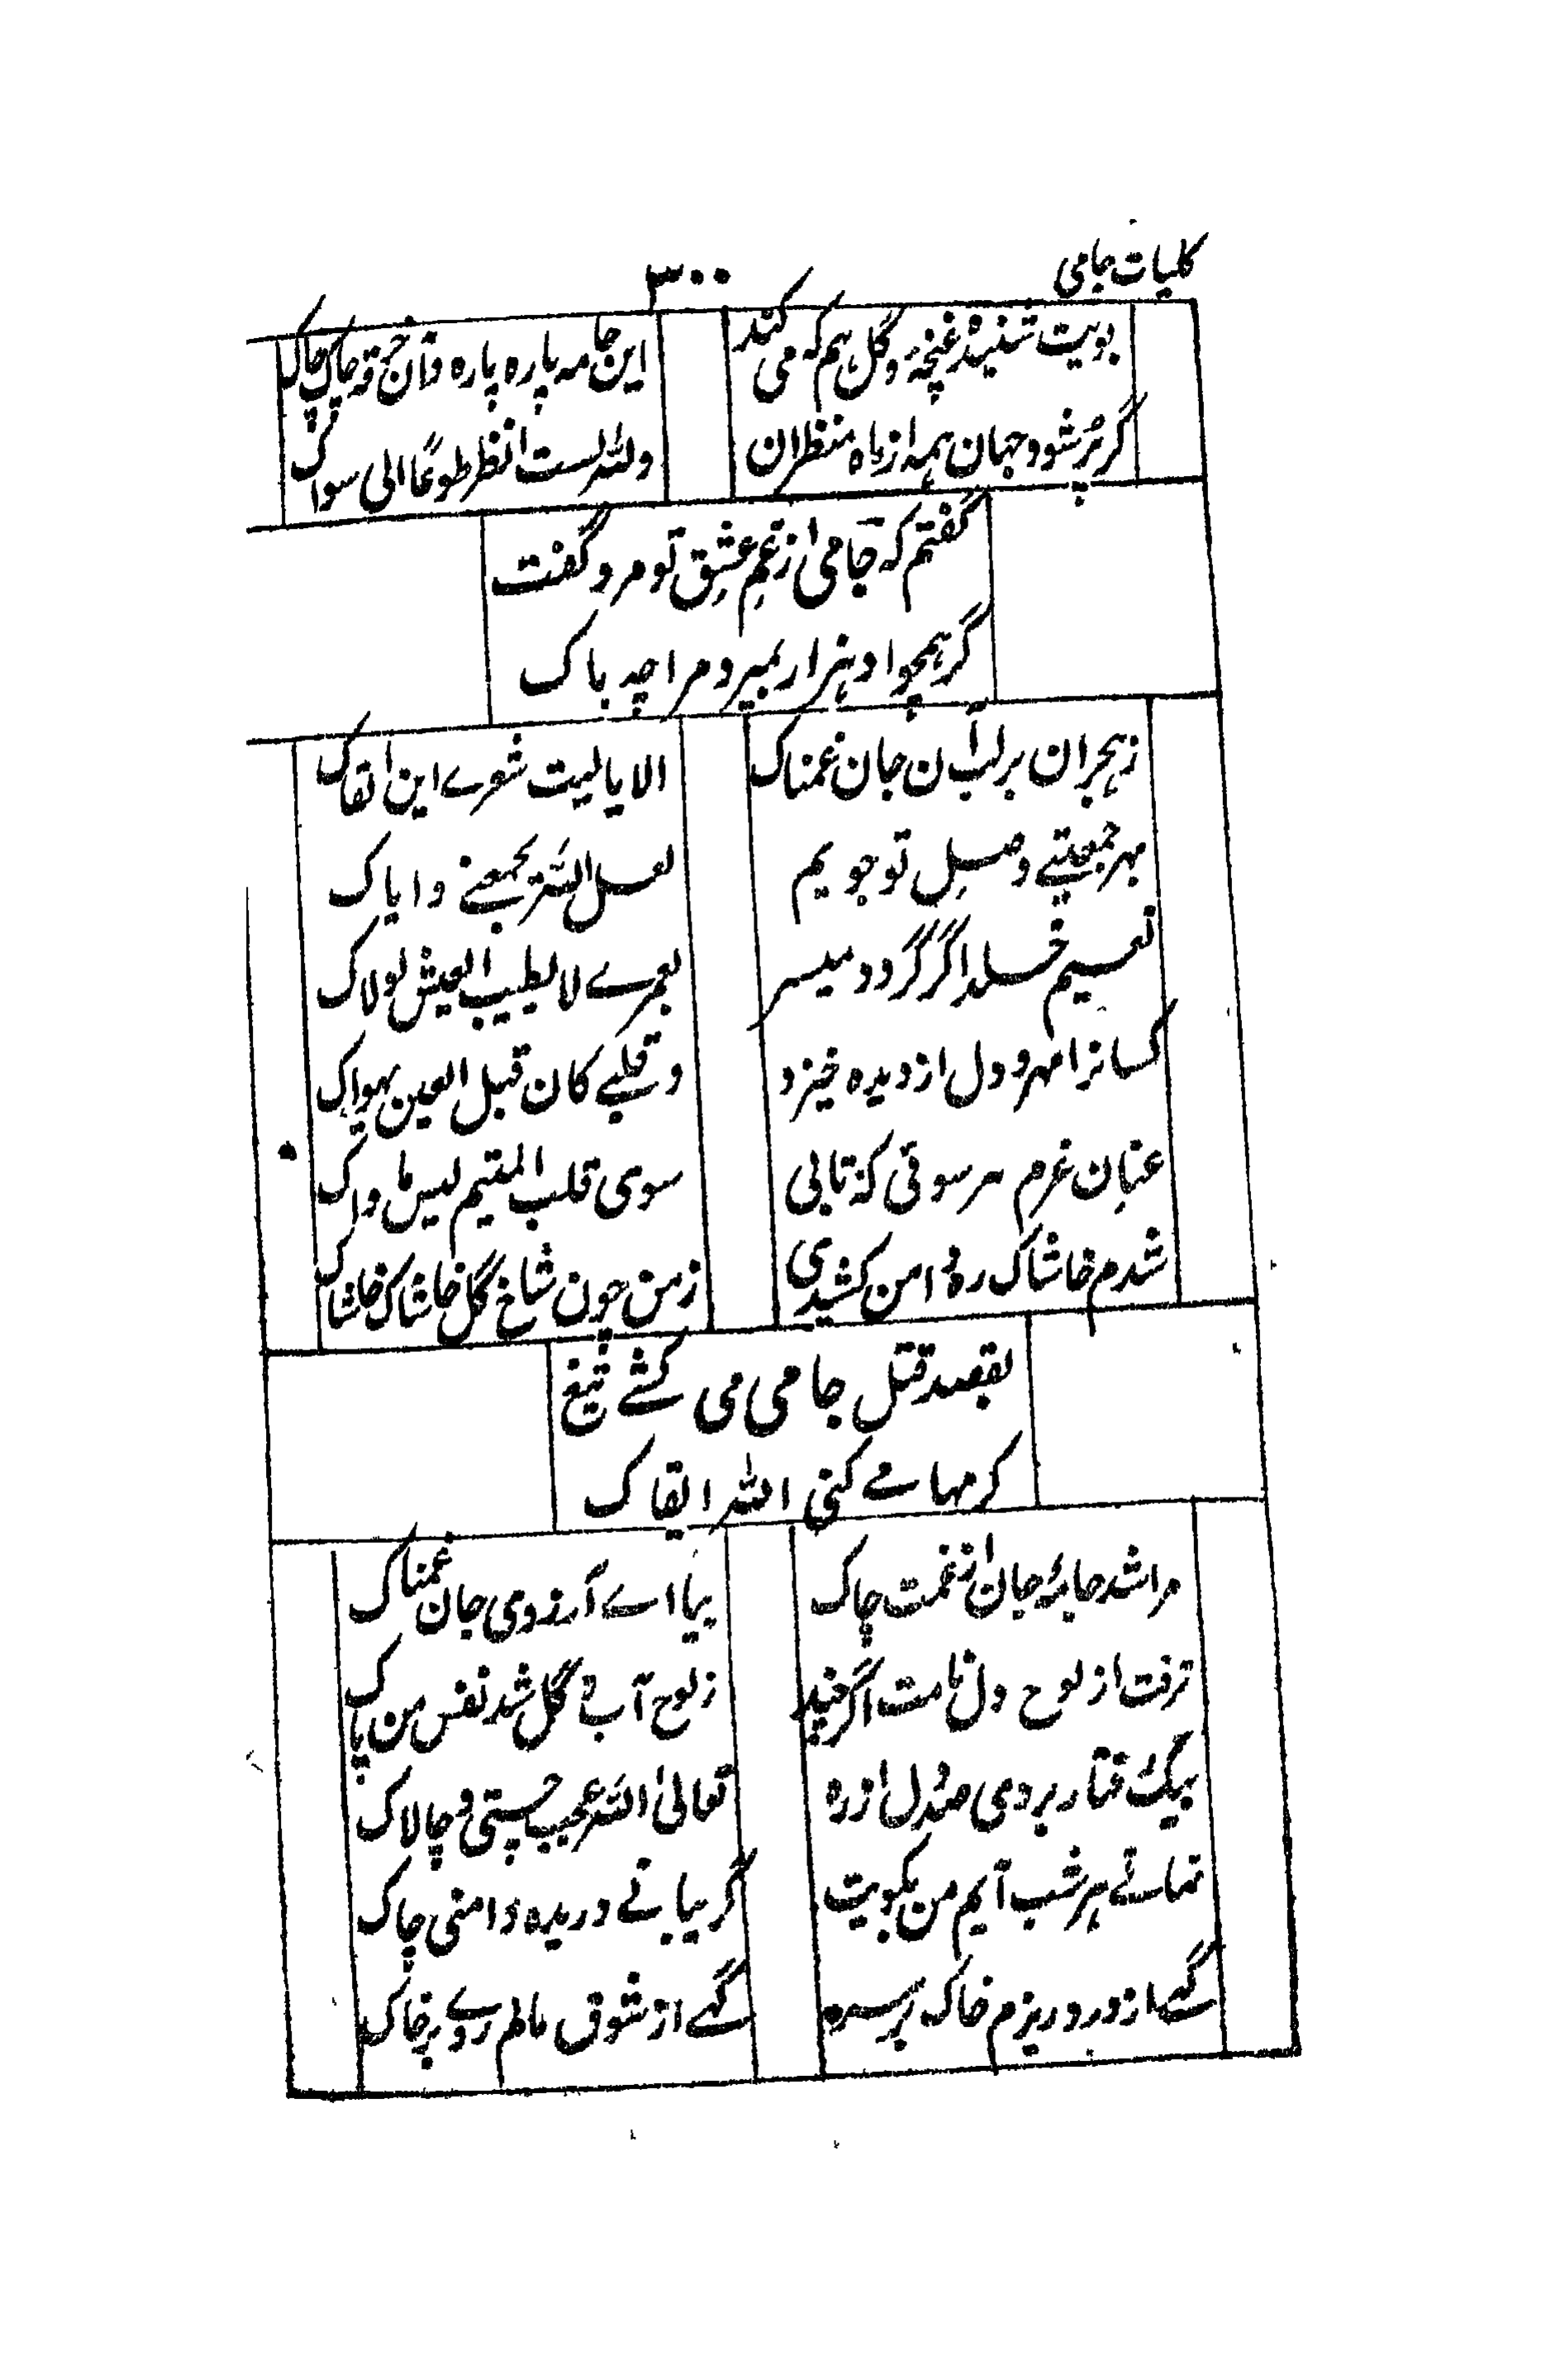 کلیات جامی
۳۰۰
بویت شنید غنچه و گل هم که می کند
این جامه پاره پاره و آن خرقه چاک چاک
گر پُر شود جهان همه از ماه منظران
والله لست انظر طوعًا الی سواک
گفتم که جامی از غمِ عشقِ تو مرد گفت
گر همچو او هزار بمیرد مرا چه باک
ز هجران بر لب آن جان غمناک
الا یا لیت شعرے این القاک
بهر جمعیتے وصلِ تو جویم
لعل اللہ یجمعنے وایاک
نعیم خلد اگر گردد میسر
لعمرے لا یطیب العیش لولاک
کسانرا مهر و دل از دیده خیزد
وقلبے کان قبل العین یهواک
عنانِ عزم هر سوئی که تابی
سوی قلب المتیم لیس ماواک
شدم خاشاک ره دامن کشیدی
ز من چون شاخ گل خاشاک خاشاک
بقصد قتل جامی می کشے تیغ
کرمها مے کنی اللہ ابقاک
مرا شد جامۂ جان از غمت چاک
بیا اے آرزوی جان غمناک
نرفت از لوح دل نامت اگر چند
ز لوح آب و گل شد نقش من پاک
بیک رفتار بردی صد دل از ره
تعالیٰ اللہ عجب چستی و چالاک
نهانے هر شب آیم من بکویت
گریبانے دریده دامنی چاک
گهے از درد ریزم خاک بر سر
گهے از شوق مالم روے بر خاک